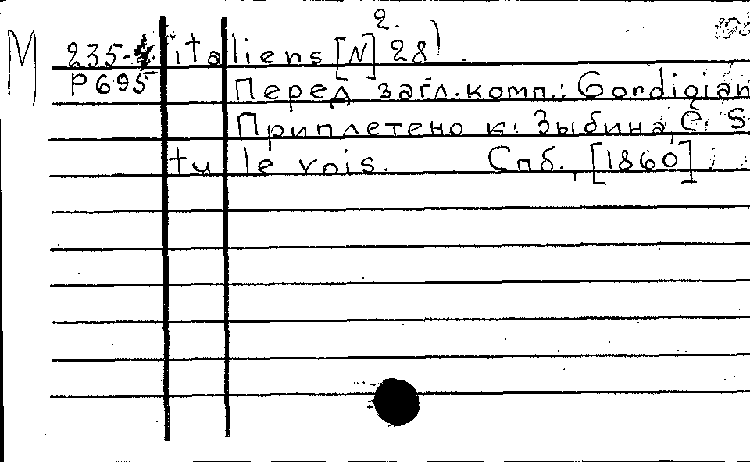 2.
M 235-4 italiens [N] 28)
P695 Перед загл. комп.: Gordigian
Приплетено к: Зыбина, С. S
tu le vois. Спб., [1860]